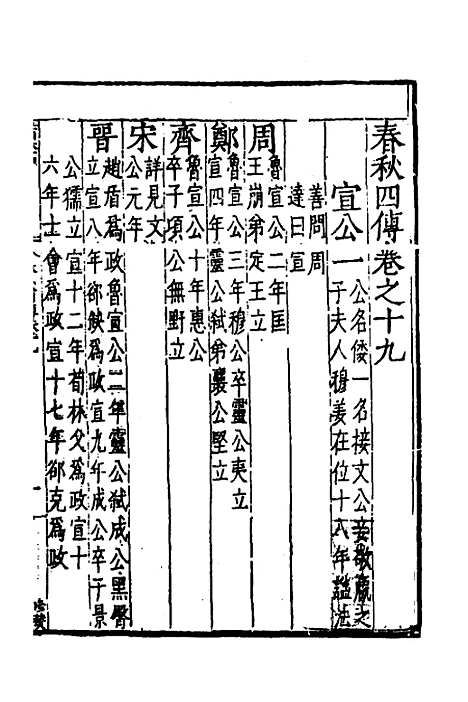 春秋四傳卷之十九
宣公一
公名倭一名接文公妾敬嬴之
子夫人穆姜在位十八年諡法
善問周
達曰宣
周
魯宣公二年匡
王崩弟定王立
鄭
魯宣公三年穆公卒靈公夷立
宣四年靈公弑弟襄公堅立
齊
魯宣公十年惠公
卒子頃公無野立
宋
詳見文
公元年
晉
趙盾爲政魯宣公二年靈公弑成公黑臀
立宣八年郤缺爲政宣九年成公卒子景
公獳立宣十二年荀林父爲政宣十
六年士會爲政宣十七年郤克爲政